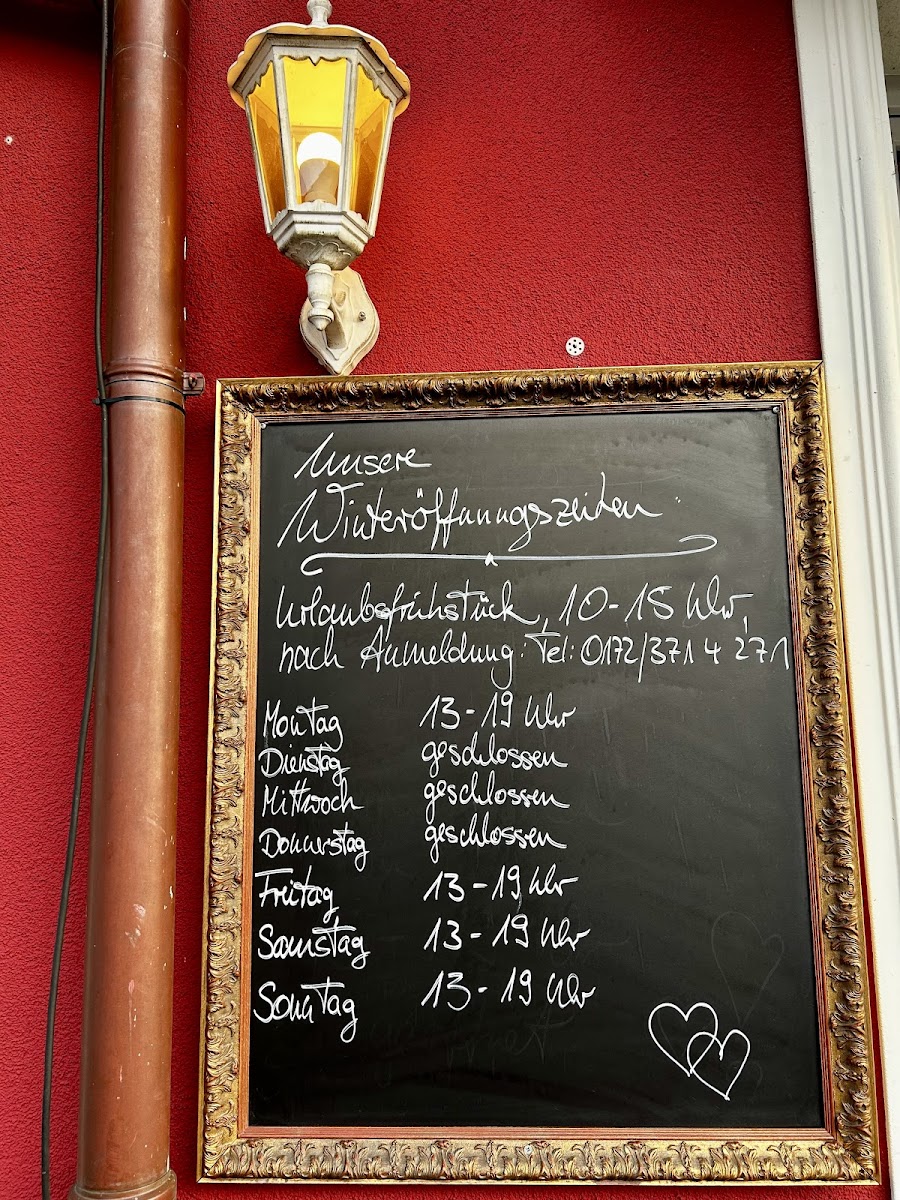 Unsere
Winteröffnungszeiten:
Urlaubsfrühstück, 10-15 Uhr,
nach Anmeldung: Tel: 0172/371 4 271
Montag 13-19 Uhr
Dienstag geschlossen
Mittwoch geschlossen
Donnerstag geschlossen
Freitag 13-19 Uhr
Samstag 13-19 Uhr
Sonntag 13-19 Uhr